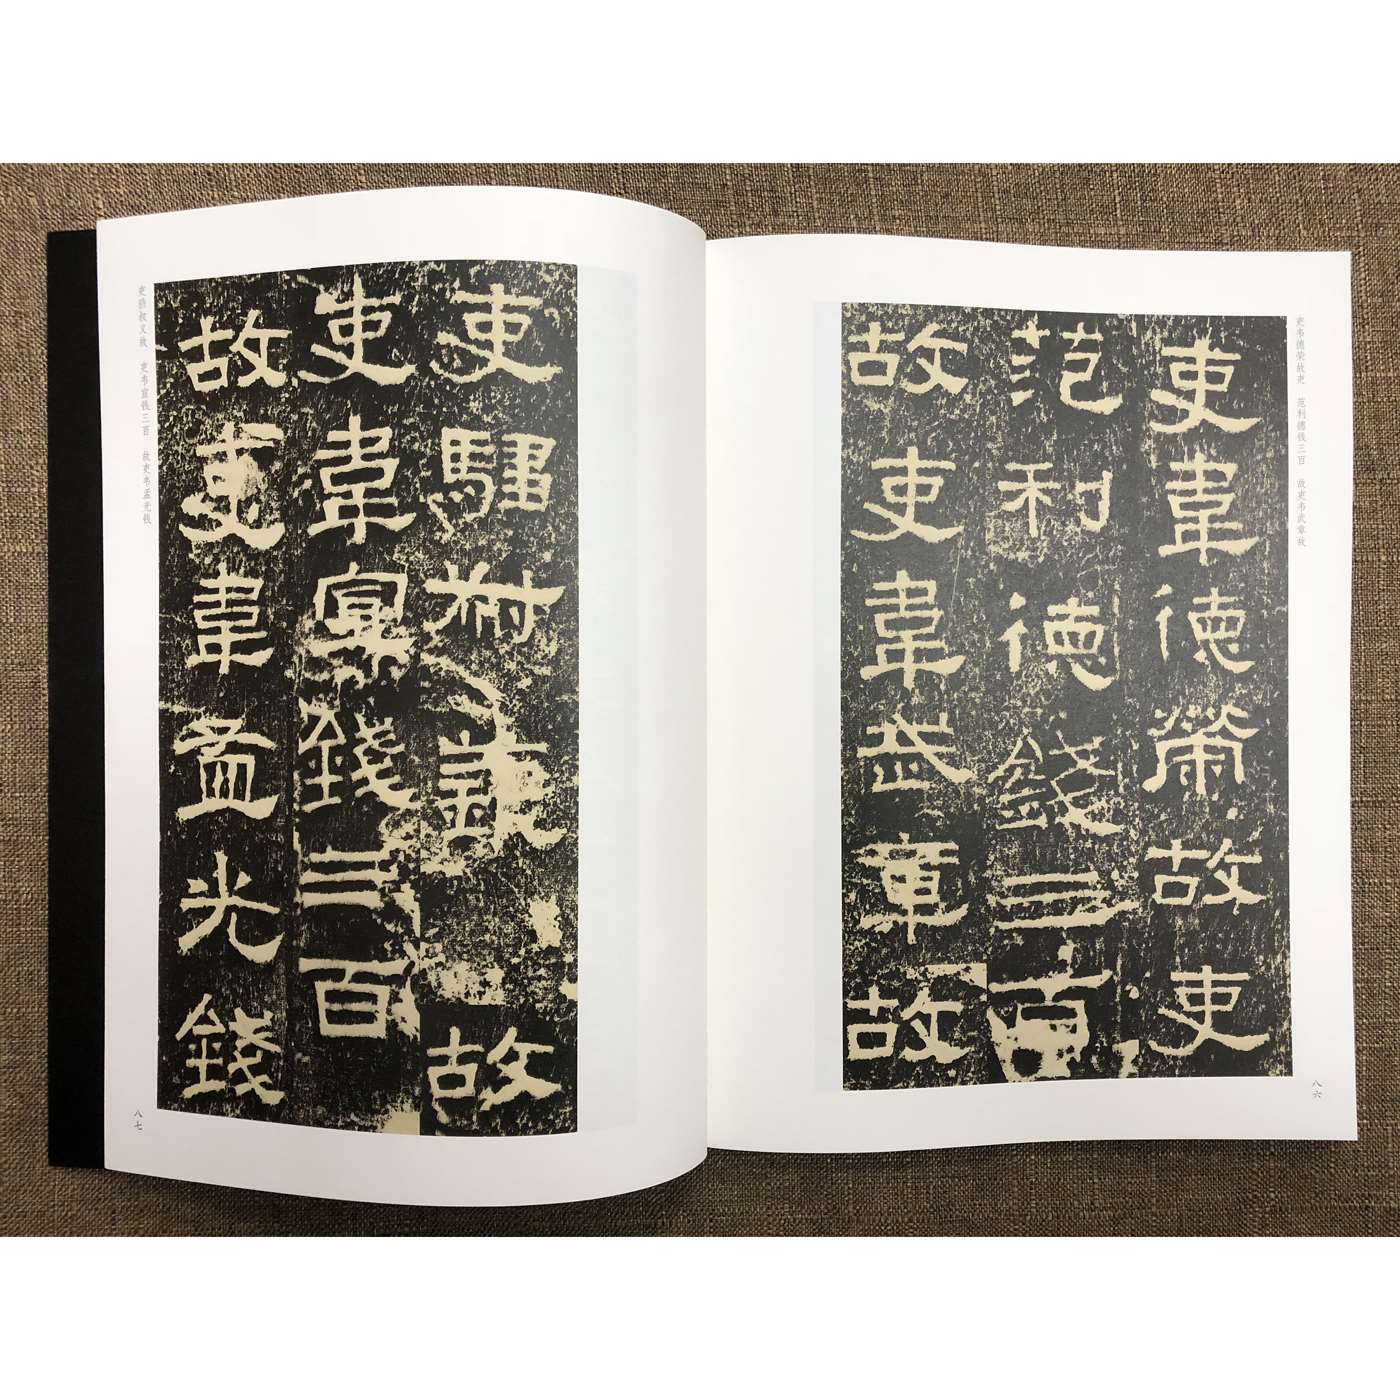 吏韦德荣故吏 范利德钱三百 故吏韦武章故
吏韋德榮故吏
范利德錢三百
故吏韋武章故
八六
吏騶叔義故
吏韋宣錢三百
故吏韋孟光錢
吏驺叔义故 吏韦宣钱三百 故吏韦孟光钱
八七